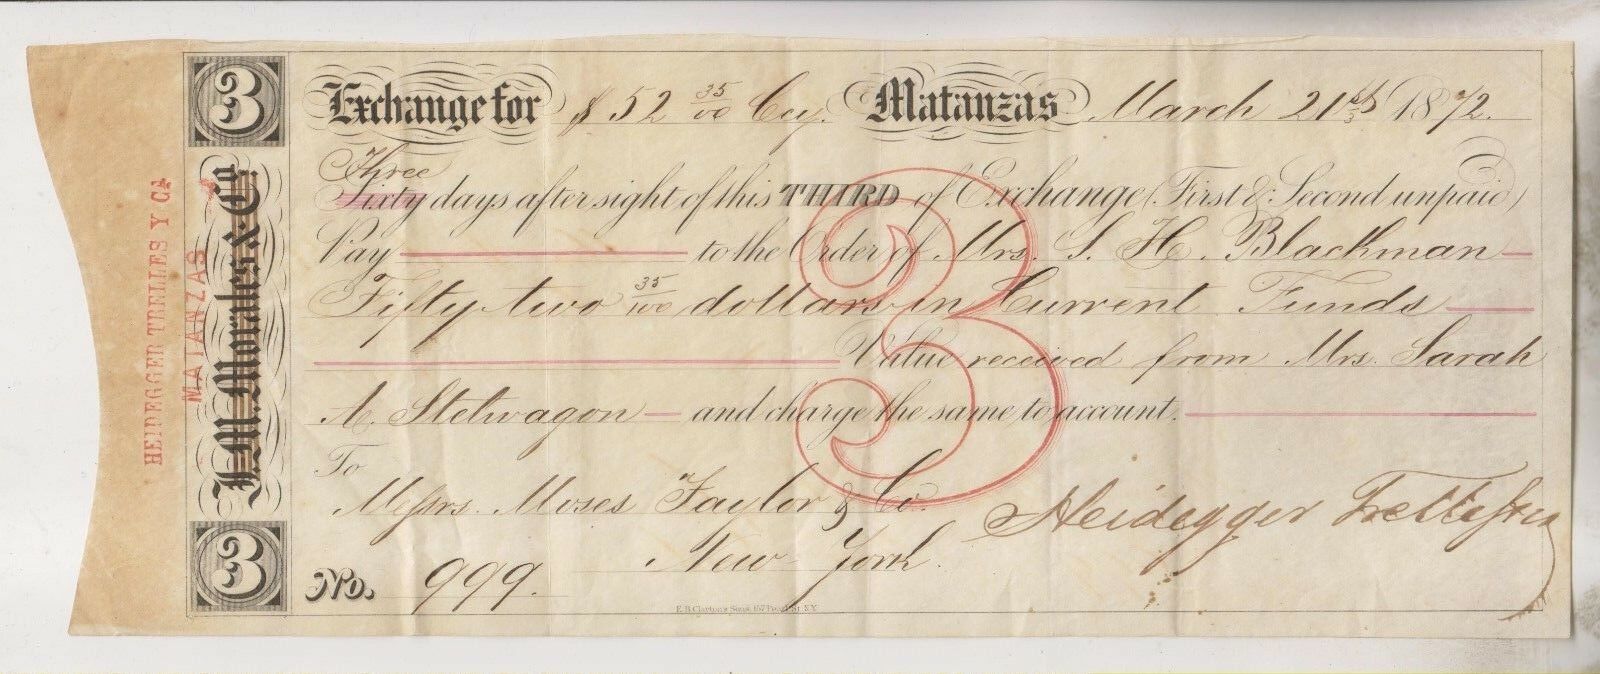 3
Exchange for $ 52 35/00 Cuy. Matanzas March 21st 1872.
Three
Sixty days after sight of this THIRD of Exchange (First & Second unpaid)
Pay to the Order of Mrs. S. H. Blackman
Fifty two 35/100 dollars in Current Funds
Value received from Mrs. Sarah
A. Stelwagon and charge the same to account.
To
Messrs. Moses Taylor & Co.
New York.
Heidegger Trelles y Ca
No. 999.
3
3
J. M. Morales & Co.
HEIDEGGER TRELLES Y CA
MATANZAS
E. B. Clayton's Sons, 157 Pearl St. N.Y.